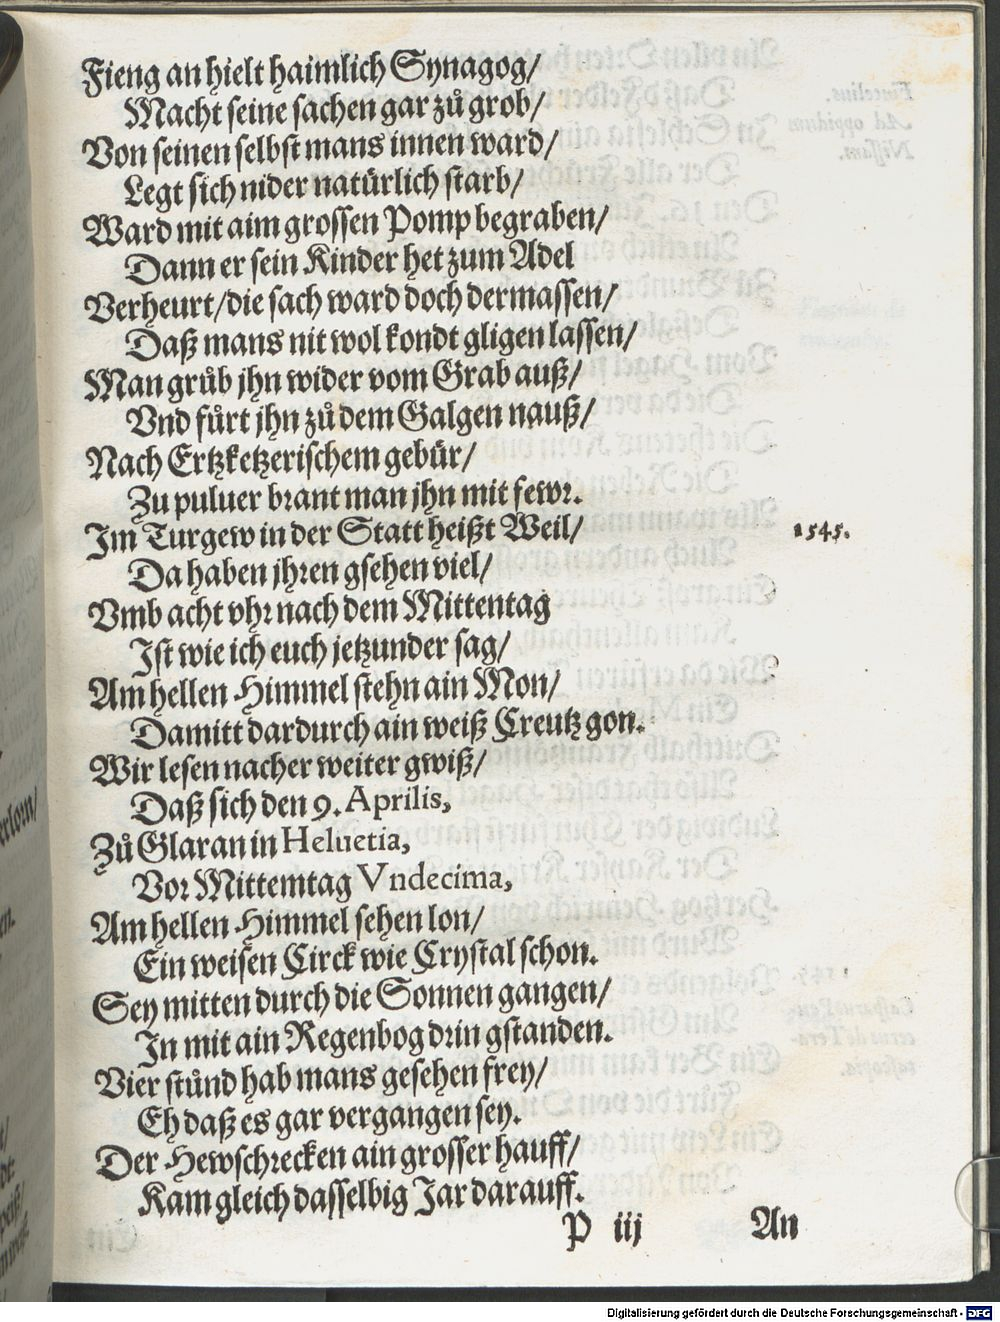 Fieng an hielt haimlich Synagog/
Macht seine sachen gar zů grob/
Von seinen selbst mans innen ward/
Legt sich nider natürlich starb/
Ward mit aim grossen Pomp begraben/
Dann er sein Kinder het zum Adel
Verheurt/die sach ward doch dermassen/
Daß mans nit wol kondt gligen lassen/
Man grůb jhn wider vom Grab auß/
Vnd fůrt jhn zů dem Galgen nauß/
Nach Ertzketzerischem gebür/
Zu puluer brant man jhn mit fewr.
Im Turgew in der Statt heißt Weil/
1545.
Da haben jhren gsehen viel/
Vmb acht vhr nach dem Mittentag
Ist wie ich euch jetzunder sag/
Am hellen Himmel stehn ain Mon/
Damitt dardurch ain weiß Creutz gon.
Wir lesen nacher weiter gwiß/
Daß sich den 9. Aprilis,
Zů Glaran in Heluetia,
Vor Mittemtag Vndecima,
Am hellen Himmel sehen lon/
Ein weisen Circk wie Crystal schon.
Sey mitten durch die Sonnen gangen/
In mit ain Regenbog drin gstanden.
Vier stůnd hab mans gesehen frey/
Eh daß es gar vergangen sey.
Der Hewschrecken ain grosser hauff/
Kam gleich dasselbig Jar darauff.
P iij
An
Digitalisierung gefördert durch die Deutsche Forschungsgemeinschaft - DFG